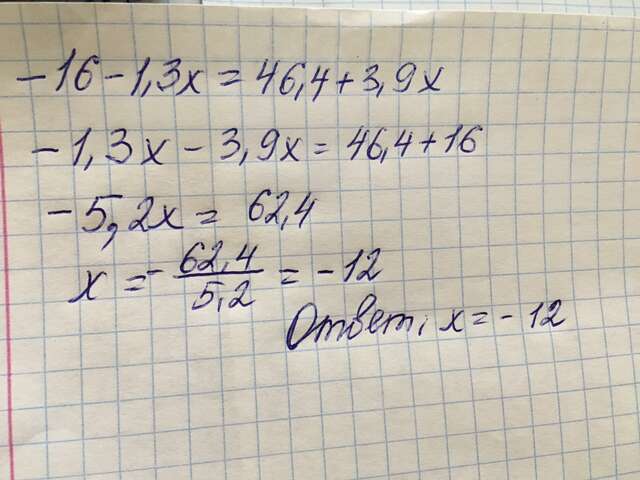 -16-1,3x=46,4+3,9x
-1,3x-3,9x=46,4+16
-5,2x=62,4
x=-62,4/5,2=-12
Ответ: x=-12